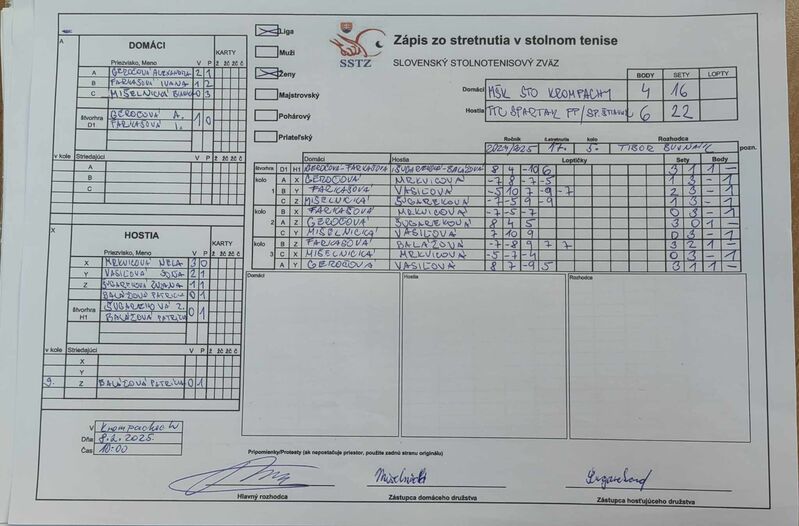 Zápis zo stretnutia v stolnom tenise
SSTZ
SLOVENSKÝ STOLNOTENISOVÝ ZVÄZ
Liga
Muži
Ženy
Majstrovský
Pohárový
Priateľský
BODY SETY LOPTY
Domáci MŠK STO KROMPACHY 4 16
Hostia TTC SPARTAK PP/SP. 6 22
Ročník 2024/2025 I.stretnutia 17. 5. Rozhodca TIBOR pozn.
A
DOMÁCI
KARTY
Priezvisko, Meno V P ž žč žč č
A GEROČOVÁ ALEXANDRA 2 1
B FARKAŠOVÁ IVANA 1 2
C MIŠELNICKÁ 0 3
štvorhra D1 GEROČOVÁ A. 1 0
FARKAŠOVÁ I.
v kole Striedajúci V P ž žč žč č
A
B
C
X
HOSTIA
KARTY
Priezvisko, Meno V P ž žč žč č
X MRKVICOVÁ NELA 3 0
Y VASIĽOVÁ 2 1
Z ZUZANA 1 1
BALÁŽOVÁ PATRÍCIA 0 1
štvorhra H1 Z. 0 1
BALÁŽOVÁ PATRÍCIA
v kole Striedajúci V P ž žč žč č
X
Y
9. Z BALÁŽOVÁ PATRÍCIA 0 1
Domáci Hostia Loptičky Sety Body
štvorhra D1 H1 GEROČOVÁ-FARKAŠOVÁ 8 4 -10 6 3 1 1 -
kolo 1 A X GEROČOVÁ MRKVICOVÁ -7 8 -7 -5 1 3 - 1
B Y FARKAŠOVÁ VASIĽOVÁ -5 10 7 -9 -7 2 3 - 1
C Z MIŠELNICKÁ -7 -5 9 -9 1 3 - 1
kolo 2 B X FARKAŠOVÁ MRKVICOVÁ -7 -5 -7 0 3 - 1
A Z GEROČOVÁ 8 4 5 3 0 1 -
C Y MIŠELNICKÁ VASIĽOVÁ 7 10 9 0 3 - 1
kolo 3 B Z FARKAŠOVÁ BALÁŽOVÁ -7 -8 9 7 7 3 2 1 -
C X MIŠELNICKÁ MRKVICOVÁ -5 -7 -4 0 3 - 1
A Y GEROČOVÁ VASIĽOVÁ 8 7 -9 5 3 1 1 -
Domáci Hostia Rozhodca
V Krompachoch
Dňa 8.2.2025
Čas 10:00
Pripomienky/Protesty (ak nepostačuje priestor, použite zadnú stranu originálu)
Hlavný rozhodca
Zástupca domáceho družstva
Zástupca hosťujúceho družstva